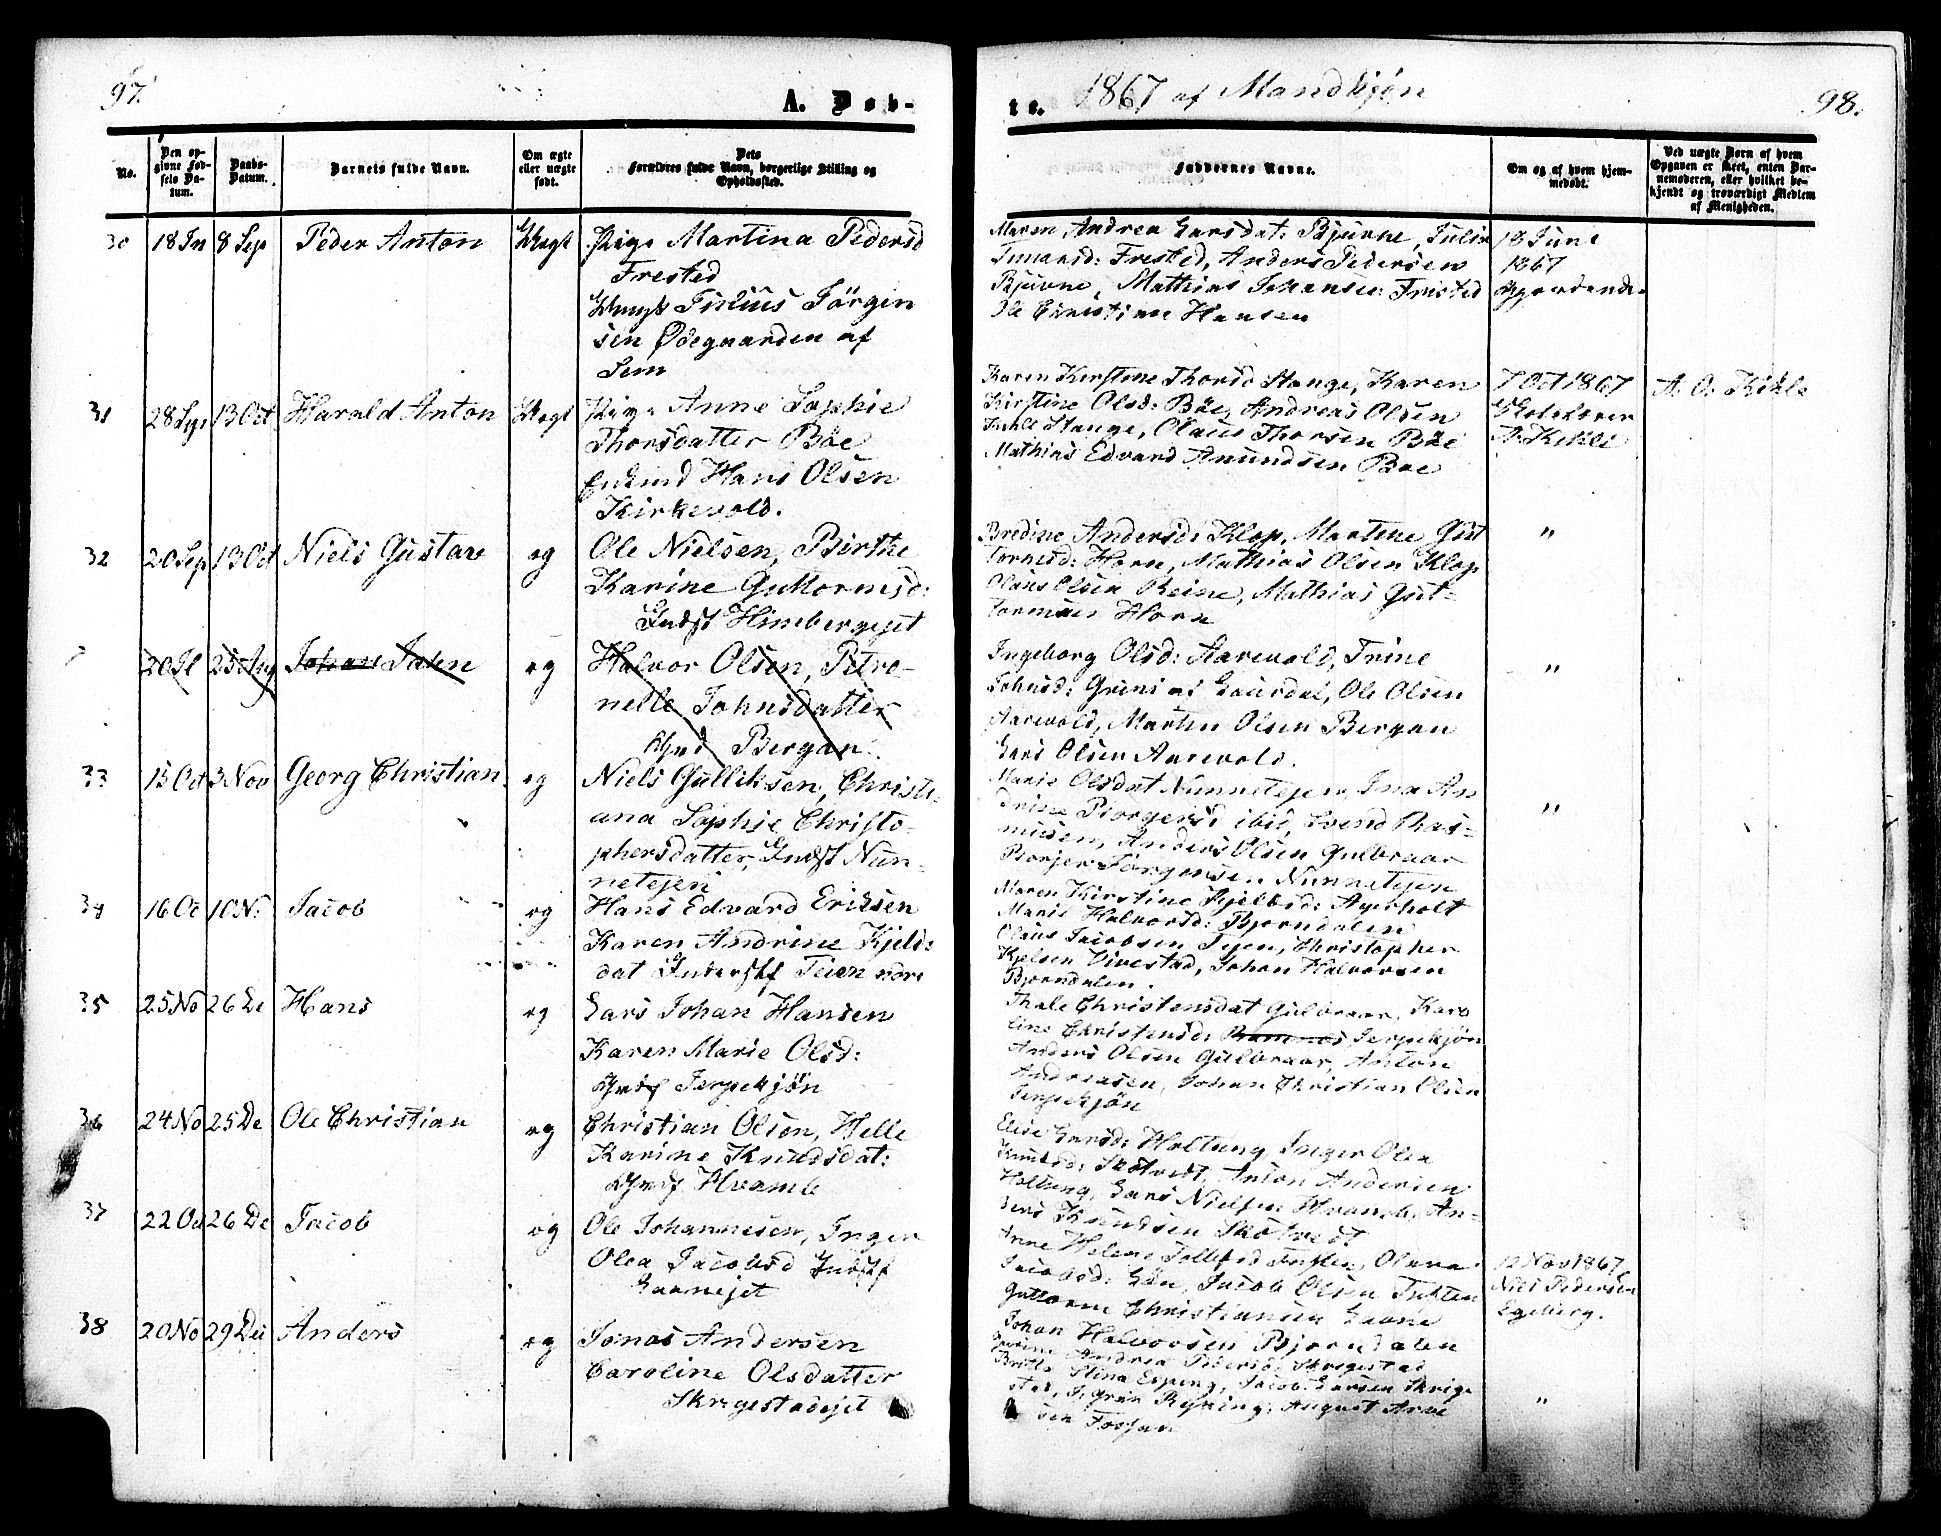 97.
A. Døb-
te.
1867 af Mandkjøn
98.
No.
Den op-
givne Fød-
sels Da-
tum.
Daabs-
Datum.
Barnets fulde Navn.
Om ægte
eller uægte
født.
Dets
Forældres fulde Navn, borgerlige Stilling og
Opholdssted.
Faddernes Navne.
Om og af hvem hjem-
medøbt.
Ved uægte Børn af hvem
Opgaven er skeet, enten Bar-
nemoderen, eller hvilket be-
kjendt og troværdigt Medlem
af Menigheden.
30 18 Jn 8 Sep Peder Anton Uægt Pige Martina Pedersd
Frested
Ungk Julius Jörgen
sen Ødegaarden af
Sem
Maren Andrea Larsdat: Bjurne, Julie
Frested, Anders Pedersen
Bjurne, Mathias Johansen Frested
Ole Christian Hansen
18 Juni
1867
31 28 Sep 13 Oct Harald Anton Uægt Pige Anne Sophie
Thorsdatter Böe
Hans Olsen
Kirkevold.
Karen Kirstine Thorsd Stange, Karen
Kirstine Olsd: Böe, Andreas Olsen
Stange, Olaus Thorsen Böe
Mathias Edvard Amundsen Boe
7 Oct 1867
A. Kihle
A. O. Kihle
32 20 Sep 13 Oct Niels Gustav eg Ole Nielsen, Birthe
Karine Guttormsd:
Indst Himbergejet
Bredine Andersd: Klop, Martine Gut
tormsd: Horn, Mathias Olsen Klop
Olaus Olsen Reine, Mathias Gut-
tormsen Horn
"
20 Jl 25 Aug Johan eg Halvor Olsen, Petro-
nelle Johnsdatter
Bergan.
Ingeborg Olsd: Aarevold, Trine
Johnsd: Greni af Laurdal, Ole Olsen
Aarevold, Martin Olsen Bergan
Lars Olsen Aarevold.
"
33 13 Oct 3 Nov Georg Christian eg Niels Gulliksen, Christi-
ana Sophie Christo-
phersdatter, Indst Nun-
netejen
Marie Olsdat Nunnetejen, Ina An
drine Borgersd ibid, Svend Ras-
musen, Anders Olsen Gulbraar
Borger Jörgensen Nunnetejen
"
34 16 Oc 10 N. Jacob eg Hans Edvard Eriksen
Karen Andrine Kjeld:
dat Inderst Teien
Maren Kirstine Kjeldsd: Ayerholt
Marie Halvorsd: Bjorndalen
Olaus Jacobsen Tejen, Christopher
Kjelsen Virestad, Johan Halvorsen
Bjorndalen.
35 25 No 26 De Hans eg Lars Johan Hansen
Karen Marie Olsd:
Jerpekjön
Thale Christensdat Gulbraar, Karo
line Christensd: Jerpekjön
Anders Olsen Gulbraar, Anton
Andreasen, Johan Christian Olsen
Jerpekjön
36 24 No 25 De Ole Christian eg Christian Olsen, Helle
Karine Knudsdat:
Hvamb
Elise Larsd: Holtung, Inger Olea
Knudsd: Skotvedt, Anton Andersen
Holtung, Lars Nielsen Hvamb, An-
ders Knudsen Skotvedt
37 22 Oc 26 De Jacob og Ole Johannesen, Inger
Olea Jacobsd Indst
Anne Helene Tollefsd Tuften, Olava
Jacobsd: Jacob Olsen Tuften
Guttorm Christiansen
12 Nov 1867
Niels Pedersen
Egeberg.
38 20 No 29 De Anders eg Jonas Andersen
Caroline Olsdatter
Skregestadejet
Johan Halvorsen Bjorndalen
Andrea Pedersd Skregestad
Stina Esping, Jacob Larsen Skrige
stad, August Arve
sen Fossan
"